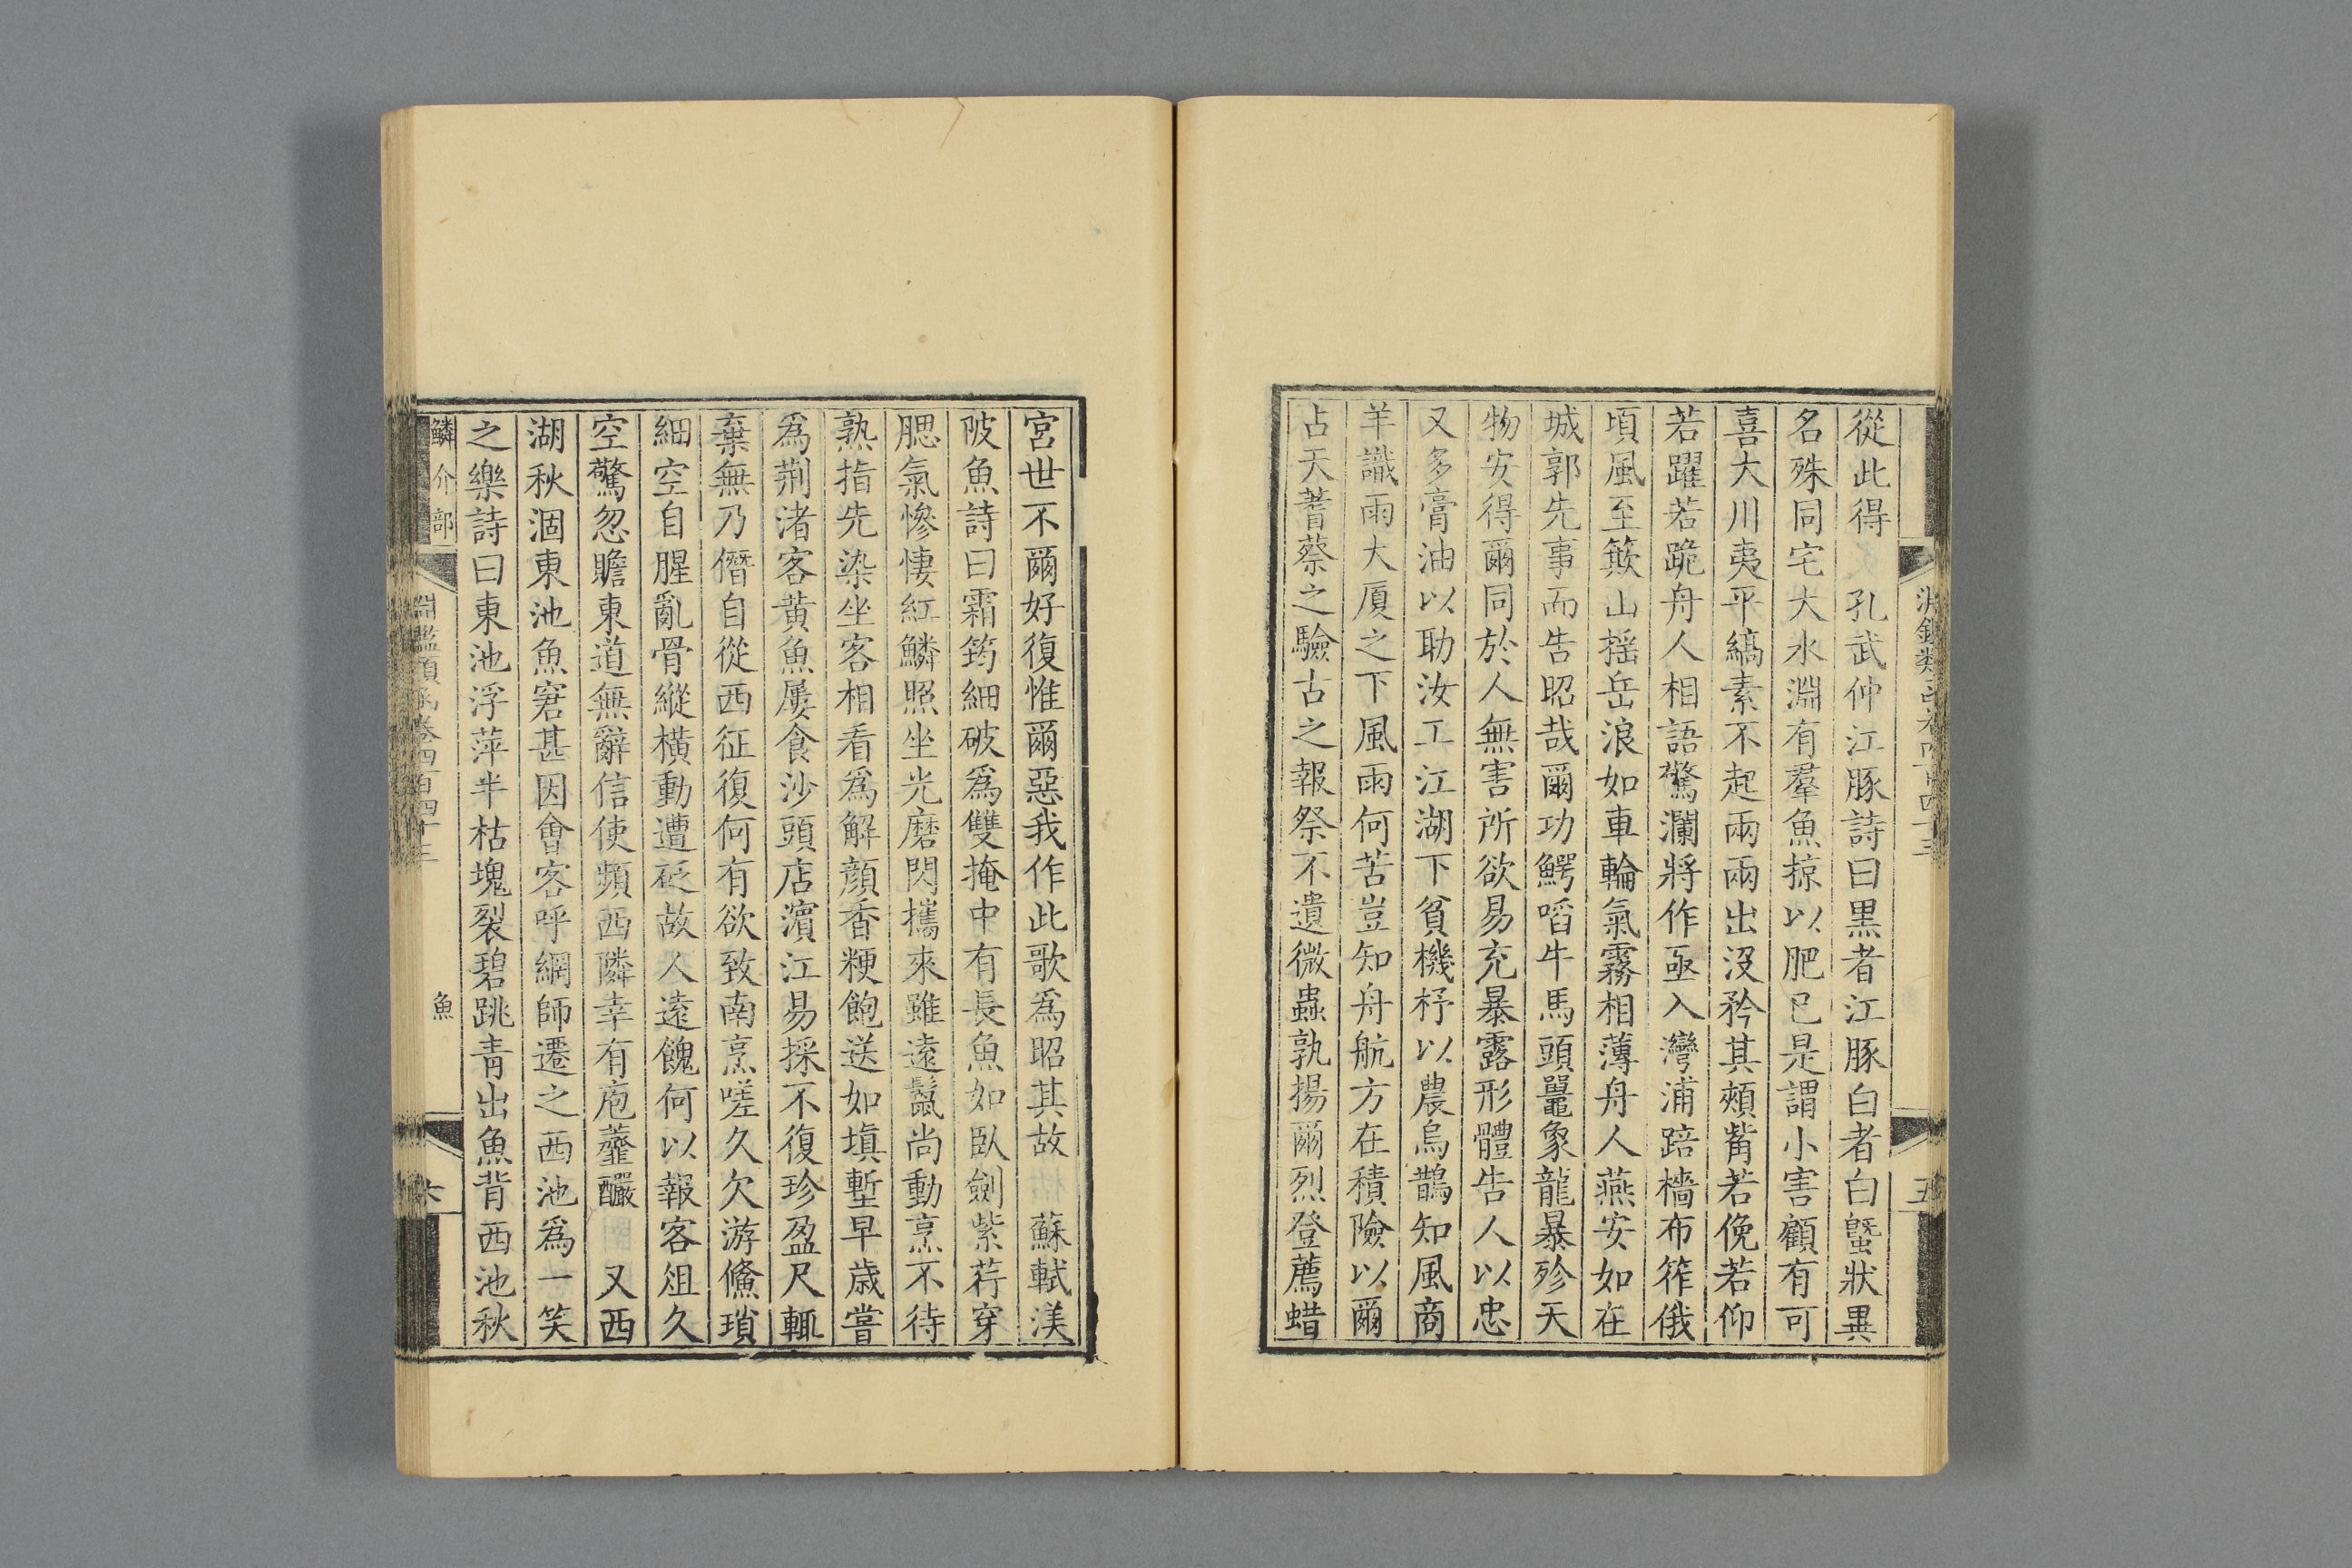 從此得　孔武仲江豚詩曰黒者江豚白者白蟹狀異
名殊同宅大水淵有羣魚掠以肥已是謂小害顧有可
喜大川夷平縞素不起兩兩出沒矜其頰觜若俛若仰
若躍若跪舟人相語驚瀾將作亟入灣浦踣檣布筰俄
頃風至簸山搖岳浪如車輪氣霧相薄舟人燕安如在
城郭先事而告昭哉爾功鰐啗牛馬頭鼉象龍暴殄天
物安得爾同於人無害所欲易充暴露形體告人以忠
又多膏油以助汝工江湖下貧機杼以農烏鵲知風商
羊識雨大厦之下風雨何苦豈知舟航方在積險以爾
占天蓍蔡之驗古之報祭不遺微蟲孰揚爾烈登薦蜡
宮世不爾好復惟爾惡我作此歌爲昭其故　蘇軾渼
陂魚詩曰霜筠細破爲雙掩中有長魚如臥劍紫荇穿
腮氣慘悽紅鱗照坐光磨閃攜來雖遠鬛尚動烹不待
熟指先染坐客相看爲解顔香粳飽送如塡塹早歲嘗
爲荆渚客黄魚屢食沙頭店濱江易採不復珍盈尺輒
棄無乃僭自從西征復何有欲致南烹嗟久欠游鯈瑣
細空自腥亂骨縱橫動遭砭故人遠餽何以報客俎久
空驚忽贍東道無辭信使頻西隣幸有庖虀釅　又西
湖秋涸東池魚窘甚因會客呼網師遷之西池爲一笑
之樂詩曰東池浮萍半枯塊裂碧跳青出魚背西池秋
鱗介部　淵鑑類函卷四百四十三　魚　六